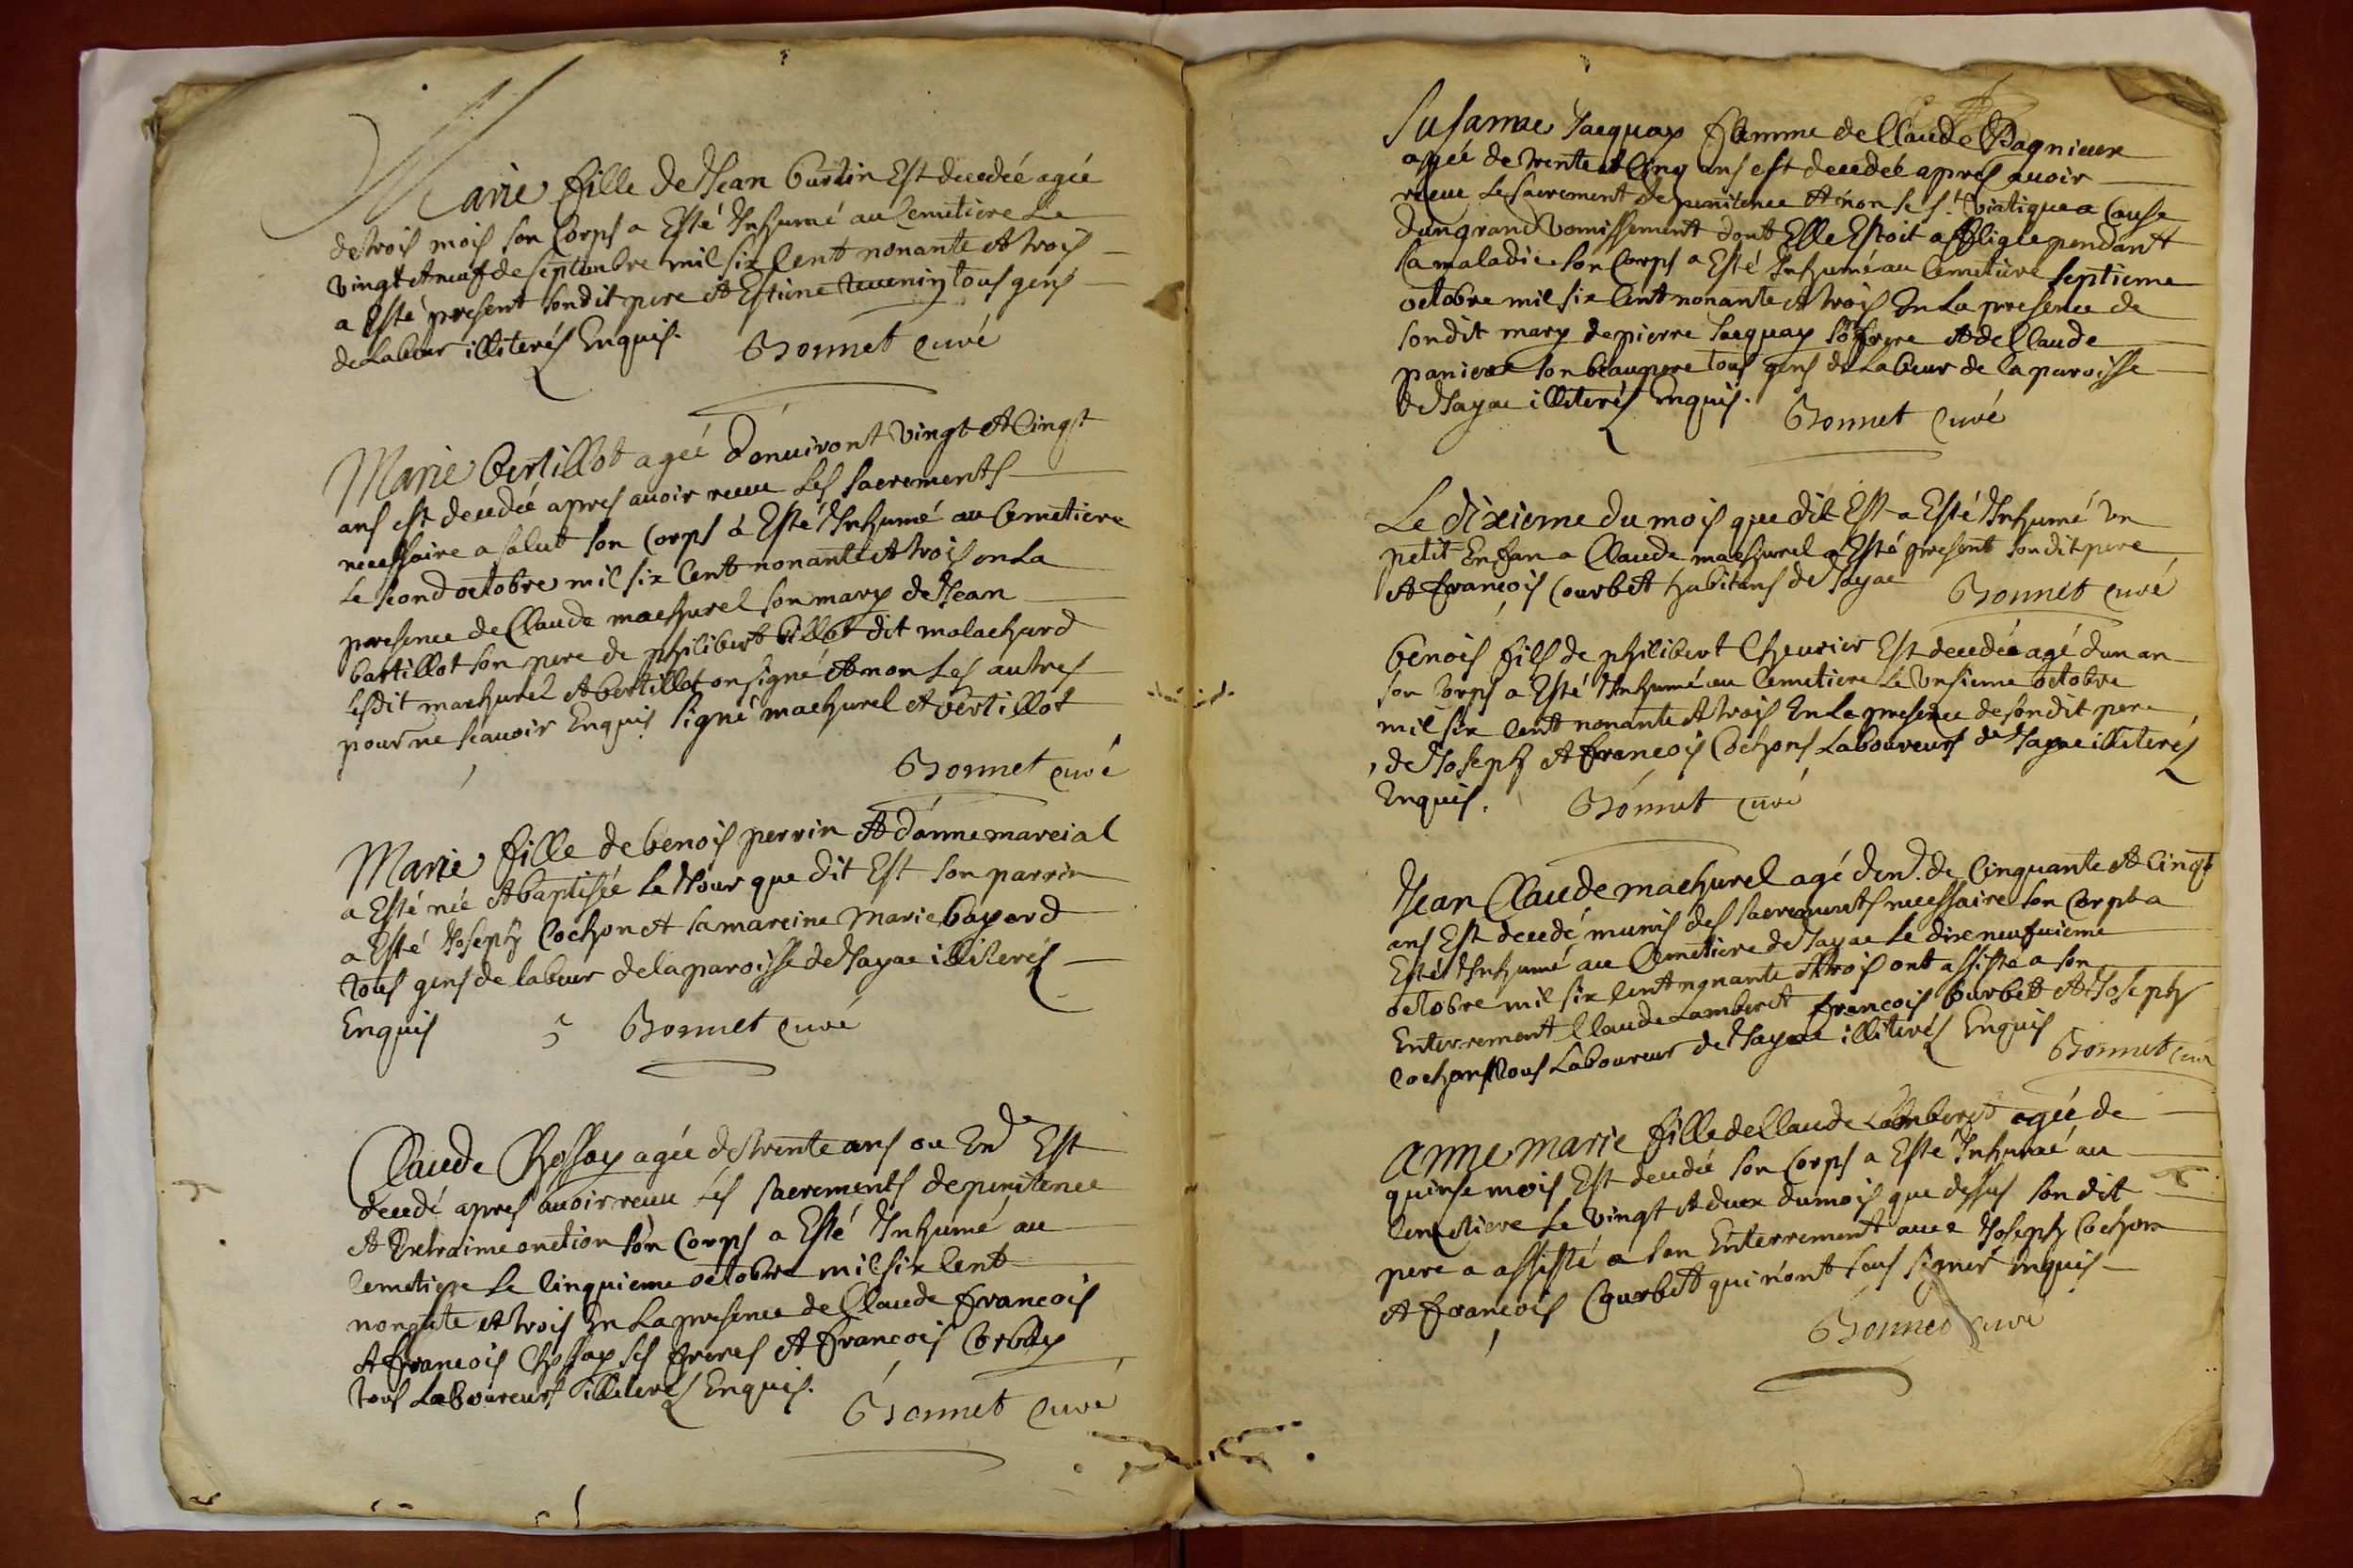 Marie fille de Jean Gurlin Est decedée agée
de trois mois son Corps a Esté Inhumé au Cemetiere Le
vingt et neuf de septembre mil six Cent nonante et trois
a Esté present sondit pere et Estiene tous gens
de Labeur illiterés Enquis. Bonnet curé
Marie Bertillot agée d'enuiront vingt et Cingt
ans est decedée apres auoir receu Les sacrements
necessaire a salut son Corps à Esté Inhumé au Cemetiere
Le second octobre mil six Cent nonante et trois en La
presence de Claude machurel son mary de Jean
bartillot son pere de philibert billot dit malachard
Lesdit machurel et bertillot on signé et non Les autres
pour ne scauoir Enquis signé machurel et bertillot
Bonnet curé
Marie fille de benois perrin et d'anne marcial
a Esté née et baptisée Le Jour que dit Est son parrin
a Esté Joseph Cochon et sa mareine marie bayard
tous gens de labeur de la paroisse de Jayac illiterés
Enquis Bonnet curé
Claude Chossay agée de trente ans ou End Est
decedé apres auoir receu Les sacrements de penitence
et Extraime onction son Corps a Esté Inhumé au
Cemetiere Le Cinquieme octobre mil six Cent
nonante et trois En La presence de Claude francois
et francois Chossay ses freres et francois Corbey
tous Laboureurs illiterés Enquis. Bonnet curé
Susanne Jacquay femme de Claude Pagnieux
agée de trente et Cinq ans est decedeé apres auoir
receu Le sacrement de penitence et non le s.t viatique a Cause
dun grand vomissement dont Elle Estoit affligee pendant
sa maladie son Corps a Esté Inhumé au Cemetiere septieme
octobre mil six Cent nonante et trois En La presence de
son dit mary de pierre Jacquay son frere et de Claude
panieux son beaupere tous gens de Labeur de la paroisse
de Jayac illiterés Enquis. Bonnet Curé
Le dixieme du mois que dit Est a Esté Inhumé un
petit Enfan a Claude machurel a Esté present son dit pere
et francois Courbet habitans de Jayac Bonnet curé
benois fils de philibert Cheurier Est decedée agé dun an
son Corps a Esté Inhumé au Cemetiere Le Unsieme octobre
mil six Cent nonante et trois En La presence de son dit pere
de Joseph et francois Cochons Laboureurs de Jayac illiterés
Enquis. Bonnet curé
Jean Claude machurel agé d'en.d de Cinquante et Cingt
ans Est decedé munis des sacrements necessaire son Corps a
Esté Inhumé au Cemetiere de Jayac Le dixneufuieme
octobre mil six Cent nonante et trois ont assisté a son
Enterrement Claude Lamberet francois Curbet et Joseph
Cochons tous Laboureur de Jayac illiterés Enquis
Bonnet Curé
Anne Marie fille de Claude Lamberet agée de
quinse mois Est decedée son Corps a Esté Inhumé au
Cemetiere Le vingt et deux du mois que dessus son dit
pere a assisté a son Enterrement auec Joseph Cochon
et francois Courbet qui n'ont sous signés Enquis
Bonnet curé